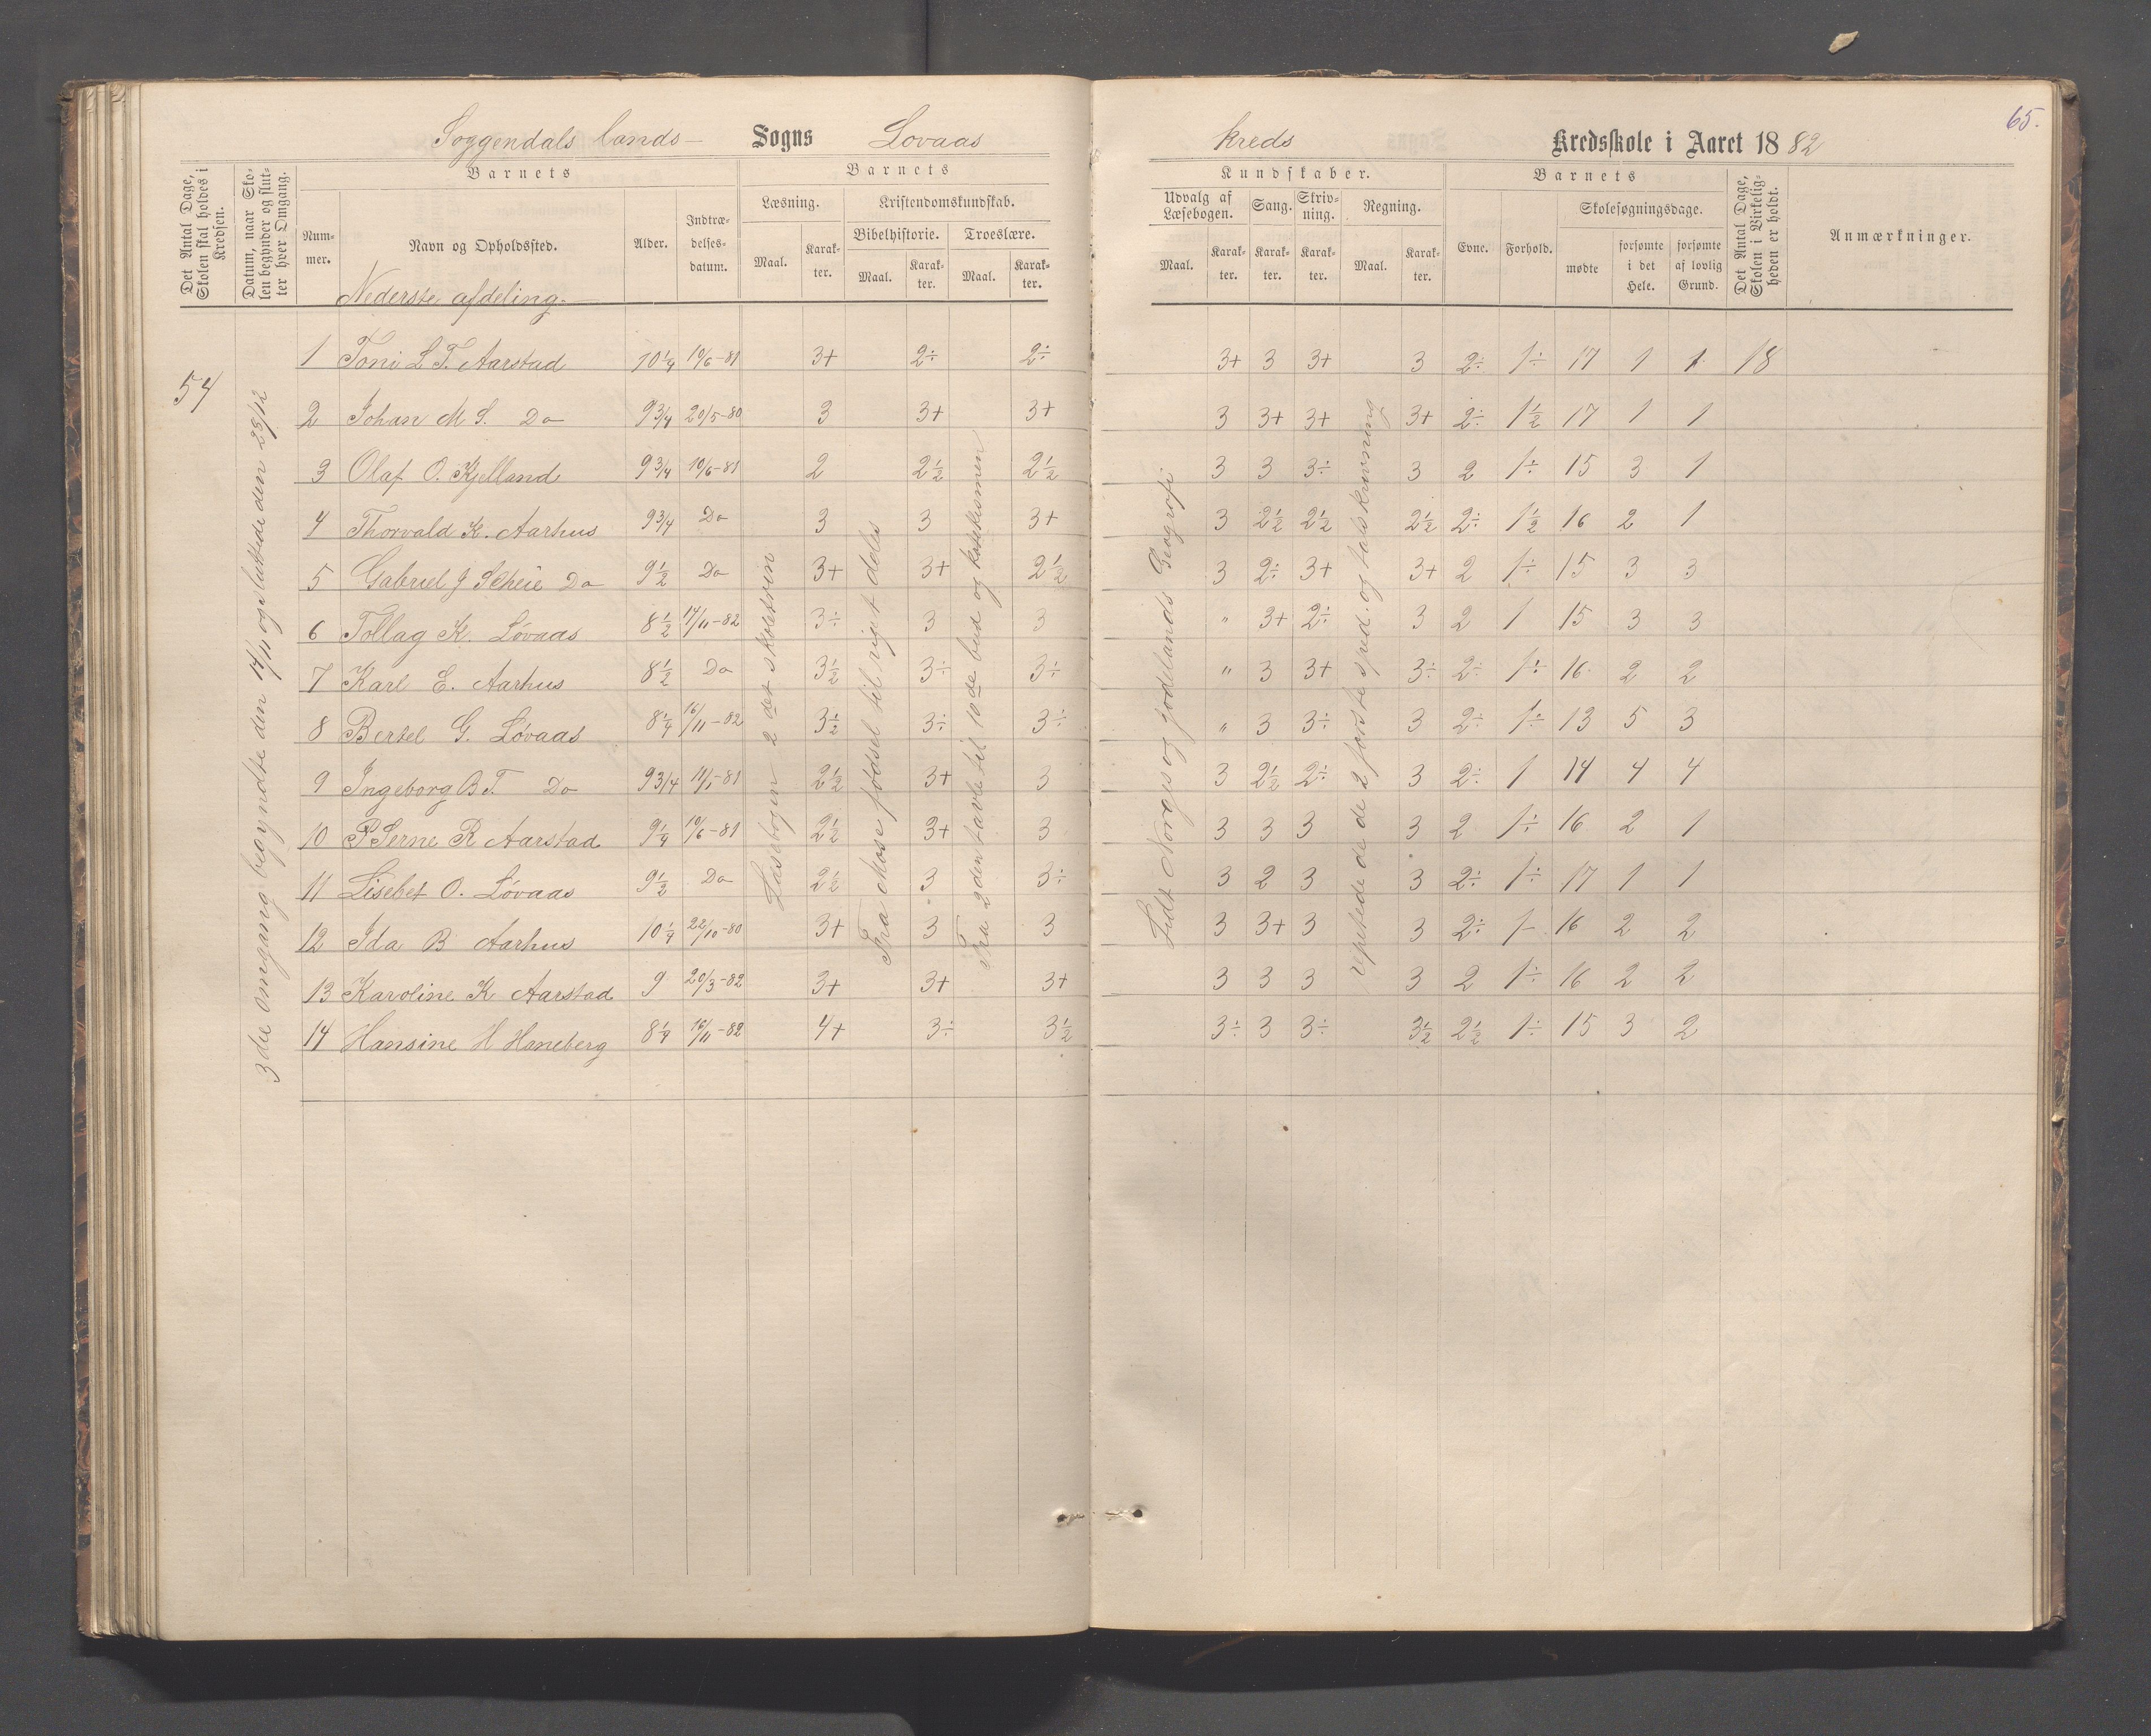 65.
Soggendals lands- Sogns Lovaas kreds Kredsskole i Aaret 1882
Det Antal Dage, Skolen skal holdes i Kredsen.
Datum, naar Skolen begynder og slutter hver Omgang.
Barnets
Nummer.
Navn og Opholdssted.
Alder.
Indtrædelsesdatum.
Barnets
Læsning.
Maal.
Karakter.
Kristendomskundskab.
Bibelhistorie.
Maal.
Karakter.
Troeslære.
Maal.
Karakter.
Kundskaber.
Udvalg af Læsebogen.
Maal.
Karakter.
Sang.
Karakter.
Skrivning.
Karakter.
Regning.
Maal.
Karakter.
Barnets
Evne.
Forhold.
Skolesøgningsdage.
mødte
forsømte i det Hele.
forsømte af lovlig Grund.
Det Antal Dage, Skolen i Virkeligheden er holdt.
Anmærkninger.
Nederste afdeling.
54
3die omgang begyndte den 14/11 og sluttede den 23/12
Læsebogen 2det skoletrin
Fra Mose fødsel til rigets deling
Fra 2den tavle til 10de bud og katekismen
Lidt Norges og Jødelands Geografi
repetede de 2 første spec. og talskrivning
1 Toni L T. Aarstad 10 1/4 10/6-81 3+ 2÷ 2÷ 3+ 3 3+ 3 2÷ 1÷ 17 1 1 18
2 Johan M S. Do 9 3/4 20/5-80 3 3+ 3+ 3 3+ 3+ 3+ 2÷ 1 1/2 17 1 1
3 Olaf O. Kjelland 9 3/4 10/6-81 2 2 1/2 2 1/2 3 3 3÷ 3 2 1÷ 15 3 1
4 Thorvald K. Aarhus 9 3/4 Do 3 3 3+ 3 2 1/2 2 1/2 2 1/2 2÷ 1 1/2 16 2 1
5 Gabriel J Scheie Do 9 1/2 Do 3+ 3+ 2 1/2 3 2÷ 3+ 3+ 2 1÷ 15 3 3
6 Tollag K. Lóvaas 8 1/2 14/11-82 3÷ 3 3 " 3+ 2÷ 3 2 1 15 3 3
7 Karl E. Aarhus 8 1/2 Do 3 1/2 3÷ 3÷ " 3 3+ 3÷ 2÷ 1÷ 16 2 2
8 Bertel G. Lóvaas 8 1/4 16/11-82 3 1/2 3÷ 3÷ " 3 3÷ 3 2÷ 1÷ 13 5 3
9 Ingeborg B T. Do 9 3/4 11/1-81 2 1/2 3+ 3 3 2 1/2 2÷ 3 2÷ 1 14 4 4
10 Serne R Aarstad 9 1/4 10/6-81 2 1/2 3+ 3 3 3 3 3 2 1÷ 16 2 1
11 Lisebet O. Lóvaas 9 1/2 Do 2 1/2 3 3÷ 3 2 3 3 2÷ 1÷ 17 1 1
12 Ida B Aarhus 10 1/4 22/10-80 3+ 3 3 3 3+ 3 3 2÷ 1- 16 2 2
13 Karoline K Aarstad 9 20/3-82 3+ 3+ 3+ 3 3 3 3 2 1÷ 16 2 2
14 Hansine H Haneberg 8 1/4 16/11-82 4+ 3÷ 3 1/2 3÷ 3 3÷ 3 1/2 2 1/2 1÷ 15 3 2